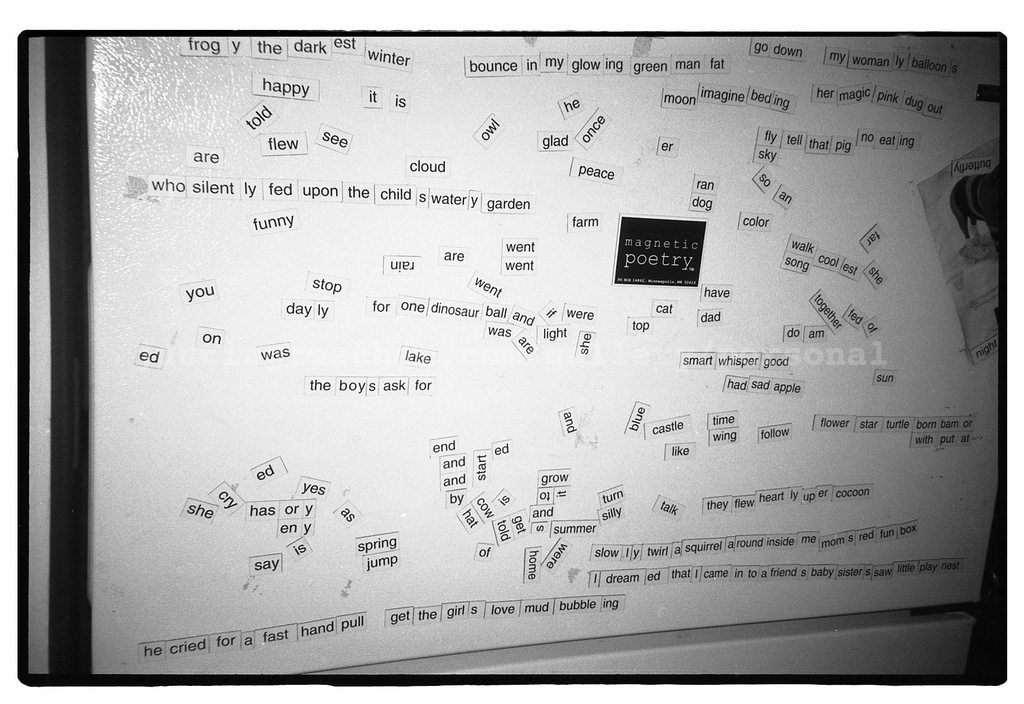 frog y the dark est winter
bounce in my glow ing green man fat
go down
my woman ly balloon s
happy
it is
told
flew
see
he
owl
glad
once
moon imagine bed ing
her magic pink dug out
er
fly tell that pig no eat ing
sky
are
cloud
peace
butterfly
who silent ly fed upon the child s water y garden
ran
dog
so an
funny
farm
magnetic
poetry
PO BOX 14862, Minneapolis, MN 55414
color
far
rain
are
went
went
walk cool est she
song
you
stop
went
have
day ly
for one dinosaur ball and if were
was are light she
cat
top
dad
together fed or
on
ed
was
lake
do am
night
smart whisper good
the boy s ask for
had sad apple
sun
and
blue
castle
time
wing
like
follow
flower star turtle born barn or
with put at
end
and
and
start
ed
by
hat
cow
is
told
get
grow
to it
and
s summer
turn
silly
talk
they flew heart ly up er cocoon
ed
cry
yes
she
has or y
en y
as
say
is
spring
jump
of
home
were
slow ly twirl a squirrel a round inside me mom s red fun box
I dream ed that I came in to a friend s baby sister s saw little play nest
he cried for a fast hand pull
get the girl s love mud bubble ing